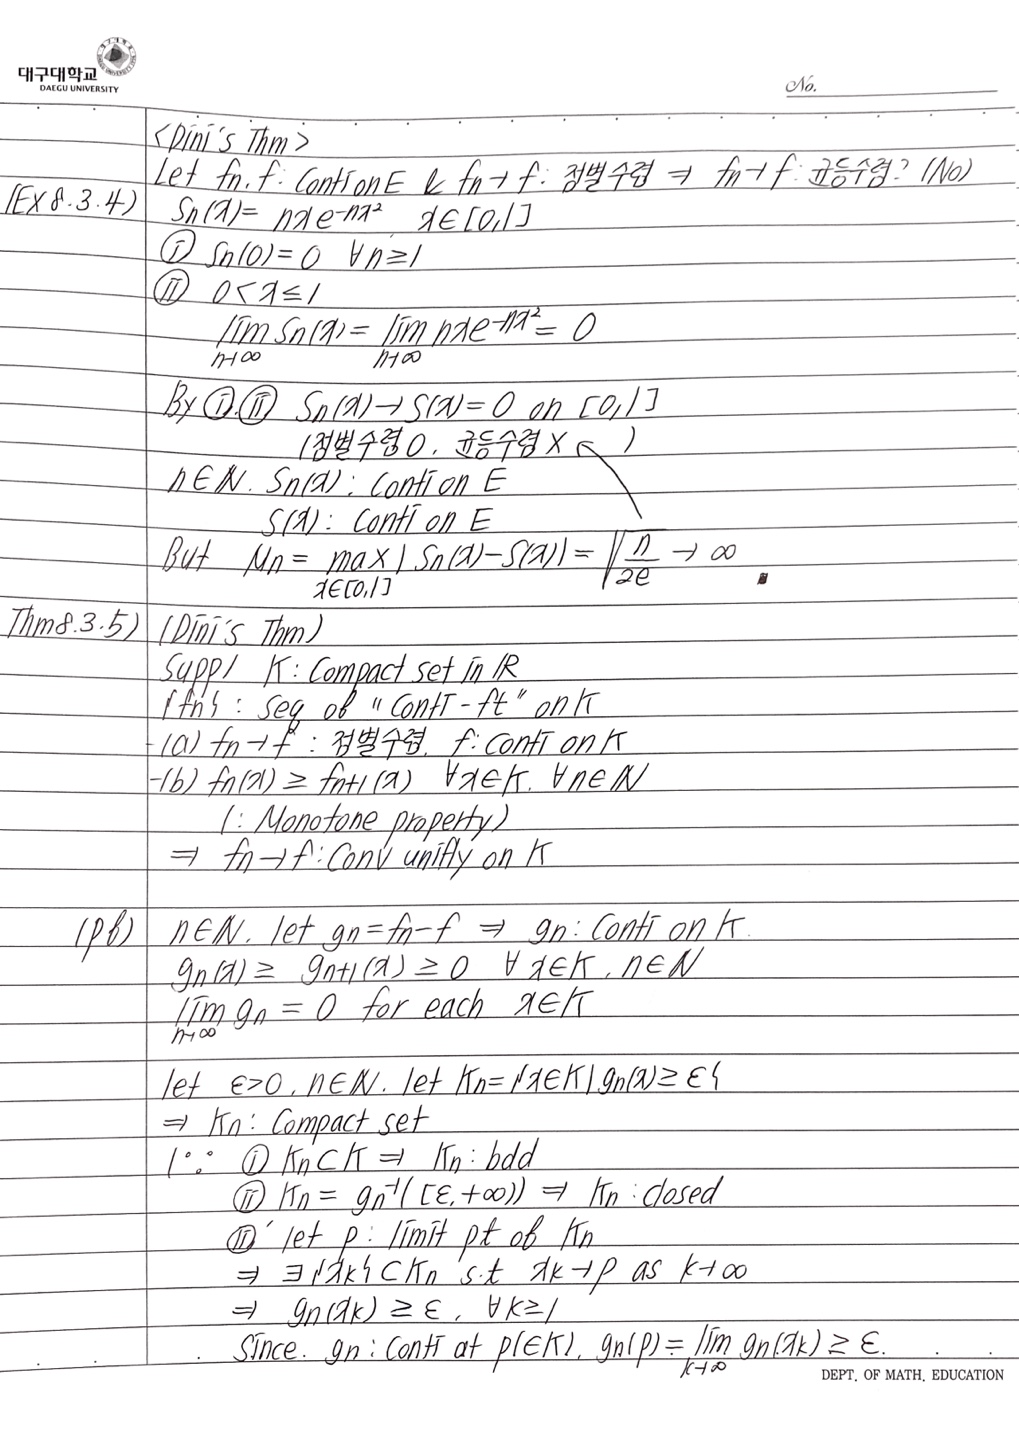 대구대학교
DAEGU UNIVERSITY
No.
<Dini's Thm>
Let fn, f: Conti on E & fn → f: 점별수렴 ⇒ fn → f: 균등수렴? (No)
(EX 8.3.4) Sn(x) = nxe^-nx² x∈[0,1]
ⓘ Sn(0) = 0 ∀n≥1
ⓘⓘ 0 < x ≤ 1
lim n→∞ Sn(x) = lim n→∞ nxe^-nx² = 0
By ⓘ.ⓘⓘ Sn(x) → S(x) = 0 on [0,1]
(점별수렴 O. 균등수렴 X )
n∈ℕ. Sn(x): Conti on E
S(x): Conti on E
But Mn = max x∈[0,1] | Sn(x) - S(x)| = √(n/2e) → ∞
Thm 8.3.5) (Dini's Thm)
Supp/ K: Compact set in ℝ
{fn}: seq of "Conti-ft" on K
-(a) fn → f : 점별수렴, f: Conti on K
-(b) fn(x) ≥ fn+1(x) ∀x∈K, ∀n∈ℕ
(: Monotone property)
⇒ fn → f: Conv unifly on K
(pf) n∈ℕ. let gn = fn - f ⇒ gn: Conti on K.
gn(x) ≥ gn+1(x) ≥ 0 ∀x∈K, n∈ℕ
lim n→∞ gn = 0 for each x∈K
let ε>0, n∈ℕ. let Kn = {x∈K| gn(x) ≥ ε}
⇒ Kn: Compact set
(∵ ⓘ Kn⊂K ⇒ Kn: bdd
ⓘⓘ Kn = gn⁻¹([ε, +∞)) ⇒ Kn: closed
ⓘⓘ' let p: limit pt of Kn
⇒ ∃{xk}⊂Kn s.t xk → p as k→∞
⇒ gn(xk) ≥ ε, ∀k≥1
Since. gn: Conti at p(∈K), gn(p) = lim k→∞ gn(xk) ≥ ε.
DEPT. OF MATH. EDUCATION